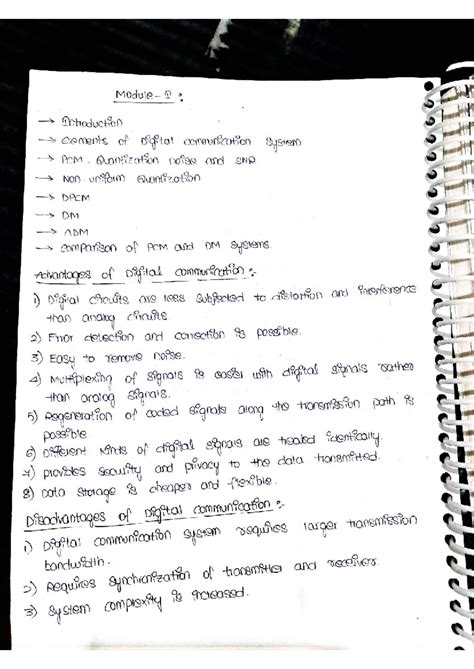 Module - 1 :
→ Introduction
→ Elements of Digital communication System
→ PCM . Quantization noise and SNR
→ Non uniform Quantization
→ DPCM
→ DM
→ ADM
→ comparison of PCM and DM Systems.
Advantages of Digital communication :-
1) Digital circuits are less subjected to distortion and interference
than analog circuits.
2) Error detection and correction is possible.
3) Easy to remove noise.
4) Multiplexing of signals is easier with digital signals rather
than analog signals.
5) Regeneration of coded signals along the transmission path is
possible
6) Different kinds of digital signals are treated identically.
7) provides security and privacy to the data transmitted.
8) Data storage is cheaper and flexible.
Disadvantages of Digital communication :-
1) Digital communication system requires larger transmission
bandwidth.
2) Requires synchronization of transmitter and receiver.
3) System complexity is increased.